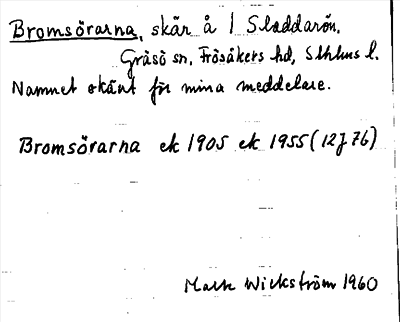 Bromsörarna, skär å 1 Sladdarön.
Gräsö sn, Frösåkers hd, Sthlms l.
Namnet okänt för mina meddelare.
Bromsörarna ek 1905 ek 1955 (12J 76)
Wickström 1960